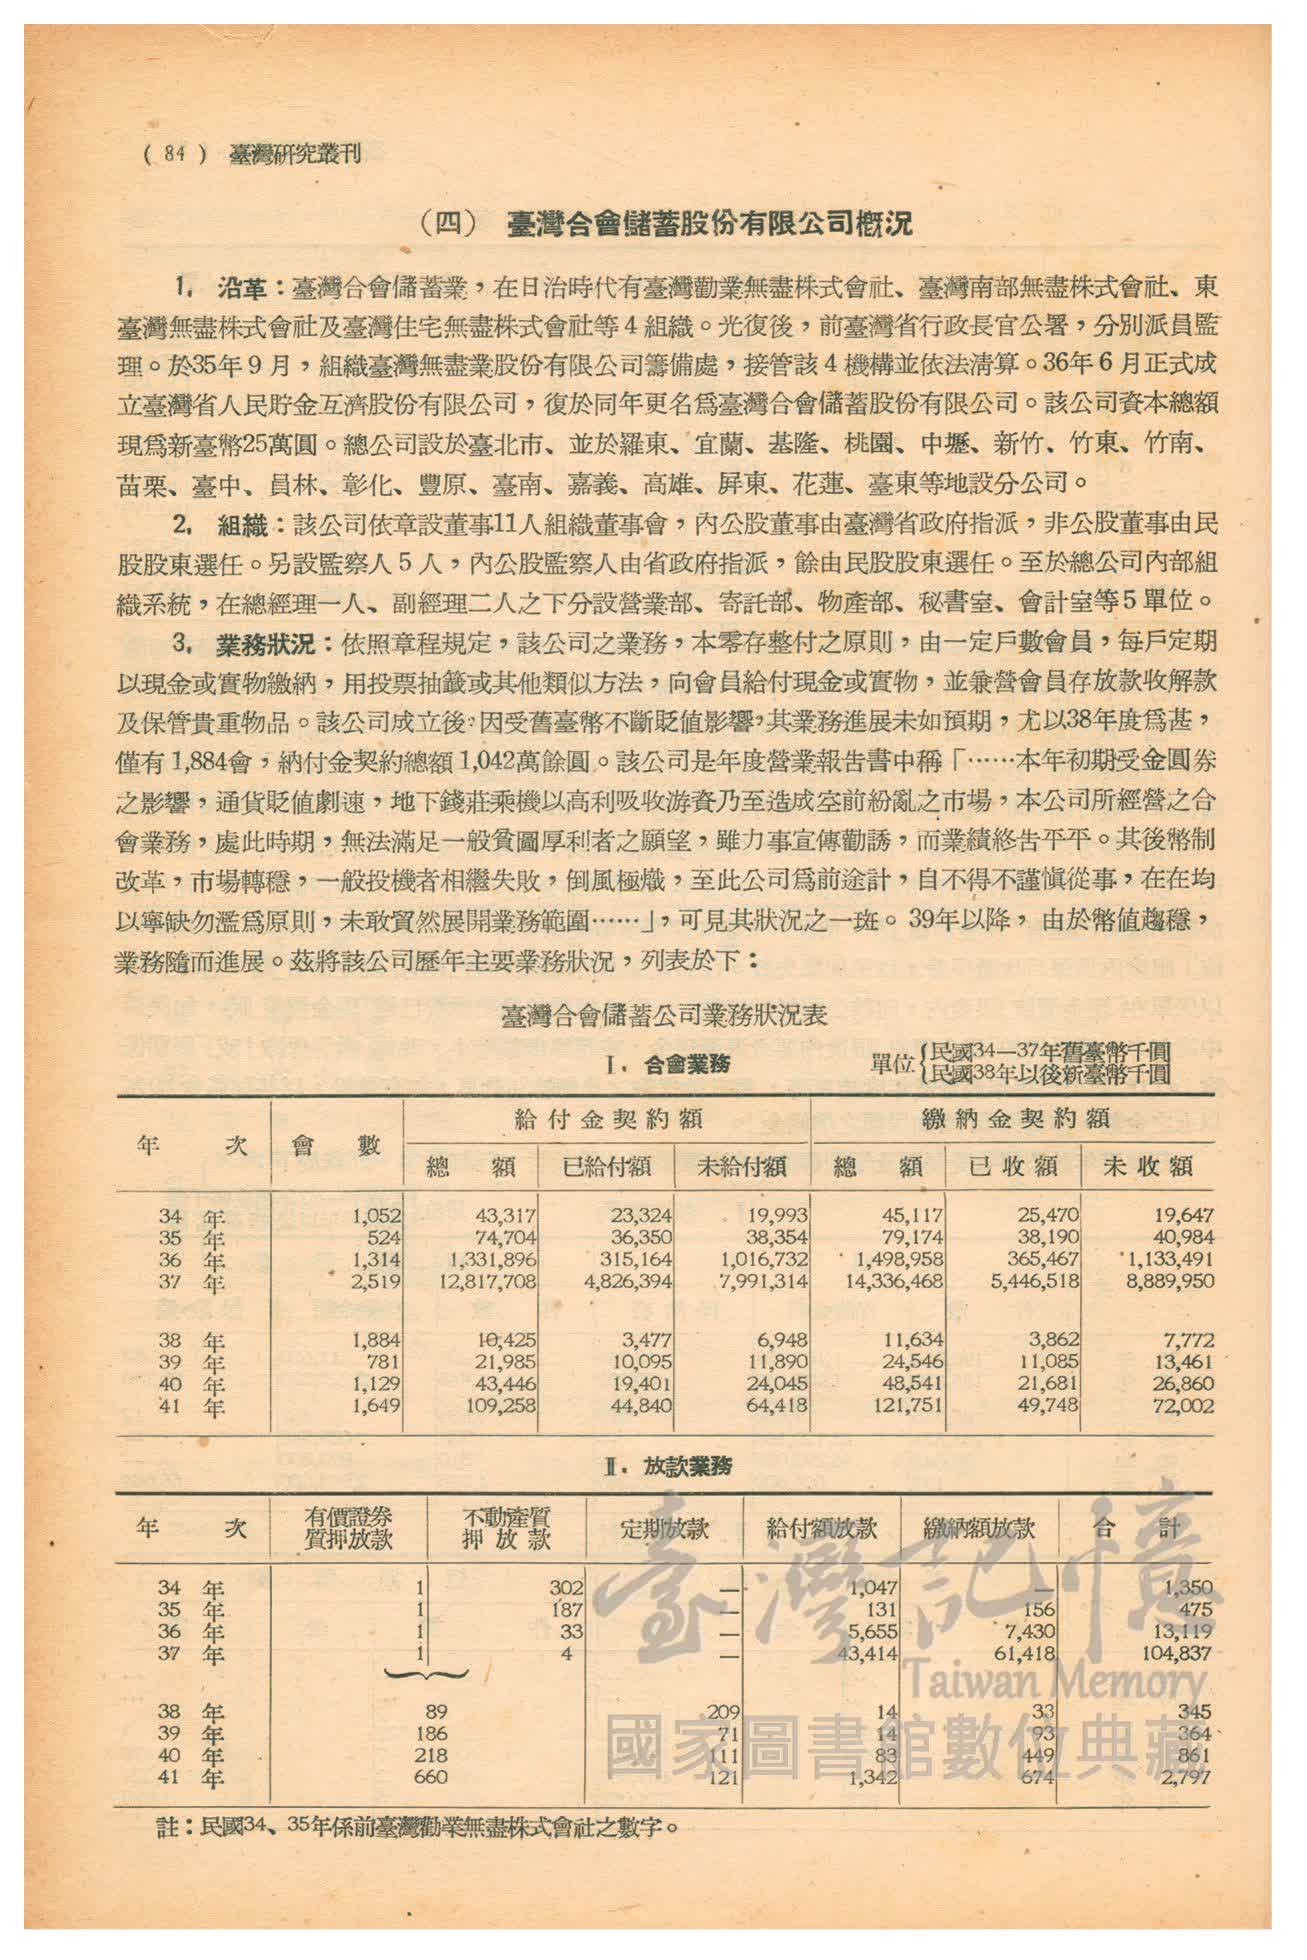 ( 84 ) 臺灣研究叢刊
(四) 臺灣合會儲蓄股份有限公司概況
1. 沿革：臺灣合會儲蓄業，在日治時代有臺灣勸業無盡株式會社、臺灣南部無盡株式會社、東
臺灣無盡株式會社及臺灣住宅無盡株式會社等4組織。光復後，前臺灣省行政長官公署，分別派員監
理。於35年9月，組織臺灣無盡業股份有限公司籌備處，接管該4機構並依法清算。36年6月正式成
立臺灣省人民貯金互濟股份有限公司，復於同年更名爲臺灣合會儲蓄股份有限公司。該公司資本總額
現爲新臺幣25萬圓。總公司設於臺北市、並於羅東、宜蘭、基隆、桃園、中壢、新竹、竹東、竹南、
苗栗、臺中、員林、彰化、豐原、臺南、嘉義、高雄、屏東、花蓮、臺東等地設分公司。
2. 組織：該公司依章設董事11人組織董事會，內公股董事由臺灣省政府指派，非公股董事由民
股股東選任。另設監察人5人，內公股監察人由省政府指派，餘由民股股東選任。至於總公司內部組
織系統，在總經理一人、副經理二人之下分設營業部、寄託部、物產部、秘書室、會計室等5單位。
3. 業務狀況：依照章程規定，該公司之業務，本零存整付之原則，由一定戶數會員，每戶定期
以現金或實物繳納，用投票抽籤或其他類似方法，向會員給付現金或實物，並兼營會員存放款收解款
及保管貴重物品。該公司成立後，因受舊臺幣不斷貶值影響，其業務進展未如預期，尤以38年度爲甚，
僅有1,884會，納付金契約總額1,042萬餘圓。該公司是年度營業報告書中稱「……本年初期受金圓券
之影響，通貨貶值劇速，地下錢莊乘機以高利吸收游資乃至造成空前紛亂之市場，本公司所經營之合
會業務，處此時期，無法滿足一般貧圖厚利者之願望，雖力事宣傳勸誘，而業績終告平平。其後幣制
改革，市場轉穩，一般投機者相繼失敗，倒風極熾，至此公司爲前途計，自不得不謹愼從事，在在均
以寧缺勿濫爲原則，未敢貿然展開業務範圍……」，可見其狀況之一斑。39年以降，由於幣值趨穩，
業務隨而進展。茲將該公司歷年主要業務狀況，列表於下：
臺灣合會儲蓄公司業務狀況表
Ⅰ. 合會業務 單位{民國34—37年舊臺幣千圓
{民國38年以後新臺幣千圓
年 次 會 數 給付金契約額 繳納金契約額
總 額 已給付額 未給付額 總 額 已收額 未收額
34 年 1,052 43,317 23,324 19,993 45,117 25,470 19,647
35 年 524 74,704 36,350 38,354 79,174 38,190 40,984
36 年 1,314 1,331,896 315,164 1,016,732 1,498,958 365,467 1,133,491
37 年 2,519 12,817,708 4,826,394 7,991,314 14,336,468 5,446,518 8,889,950
38 年 1,884 10,425 3,477 6,948 11,634 3,862 7,772
39 年 781 21,985 10,095 11,890 24,546 11,085 13,461
40 年 1,129 43,446 19,401 24,045 48,541 21,681 26,860
41 年 1,649 109,258 44,840 64,418 121,751 49,748 72,002
Ⅱ. 放款業務
年 次 有價證券質押放款 不動產質押放款 定期放款 給付額放款 繳納額放款 合 計
34 年 1 302 — 1,047 — 1,350
35 年 1 187 — 131 156 475
36 年 1 33 — 5,655 7,430 13,119
37 年 1 4 — 43,414 61,418 104,837
38 年 89 209 14 33 345
39 年 186 71 14 93 364
40 年 218 111 83 449 861
41 年 660 121 1,342 674 2,797
註：民國34、35年係前臺灣勸業無盡株式會社之數字。
臺灣記憶
Taiwan Memory
國家圖書館數位典藏